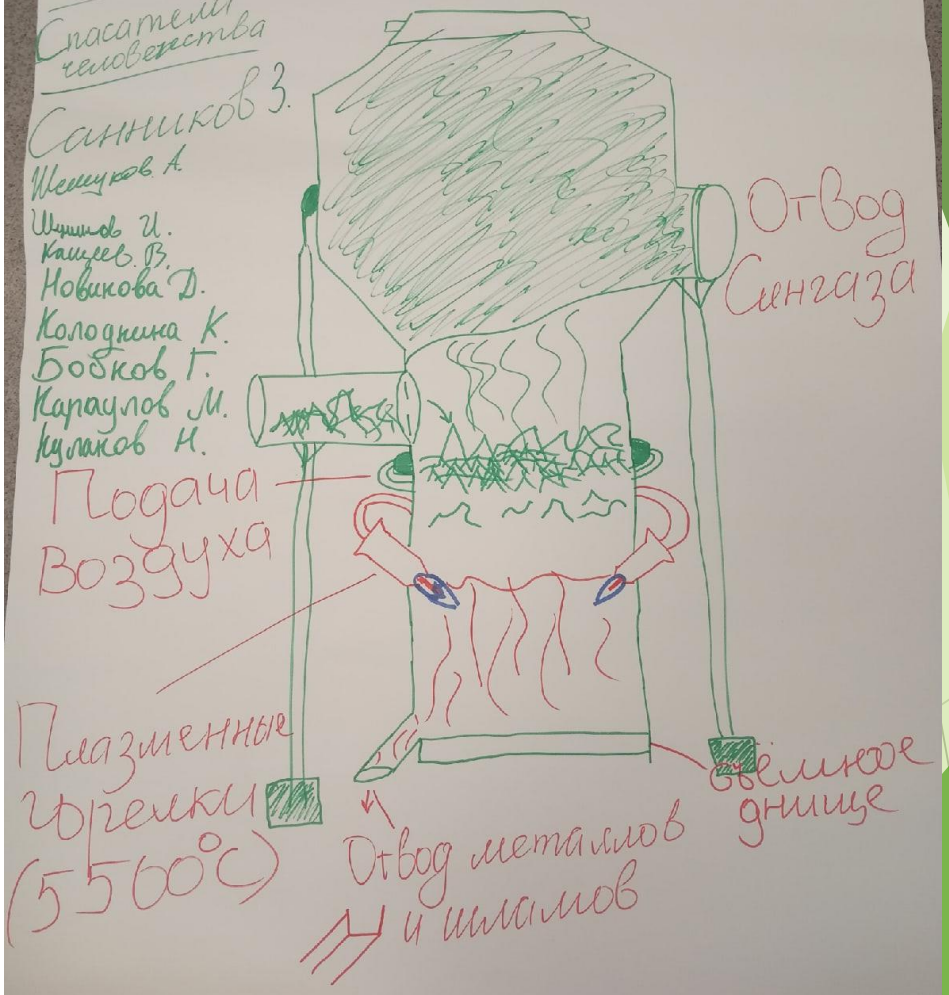 Спасатели
человечества
Санников З.
Шешуков А.
Шишов И.
Кащеев. В.
Новикова Д.
Колоднина К.
Бобков Г.
Караулов М.
Кулаков Н.
Отвод
Сингаза
Подача
Воздуха
Плазменные
горелки
(5560°С)
Отвод металлов
и шламов
съёмное
днище